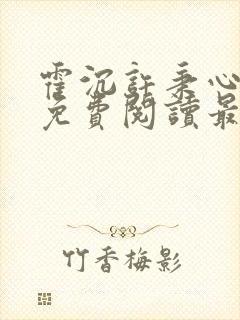 霍沉許秉心
免費閱讀最
竹香梅影